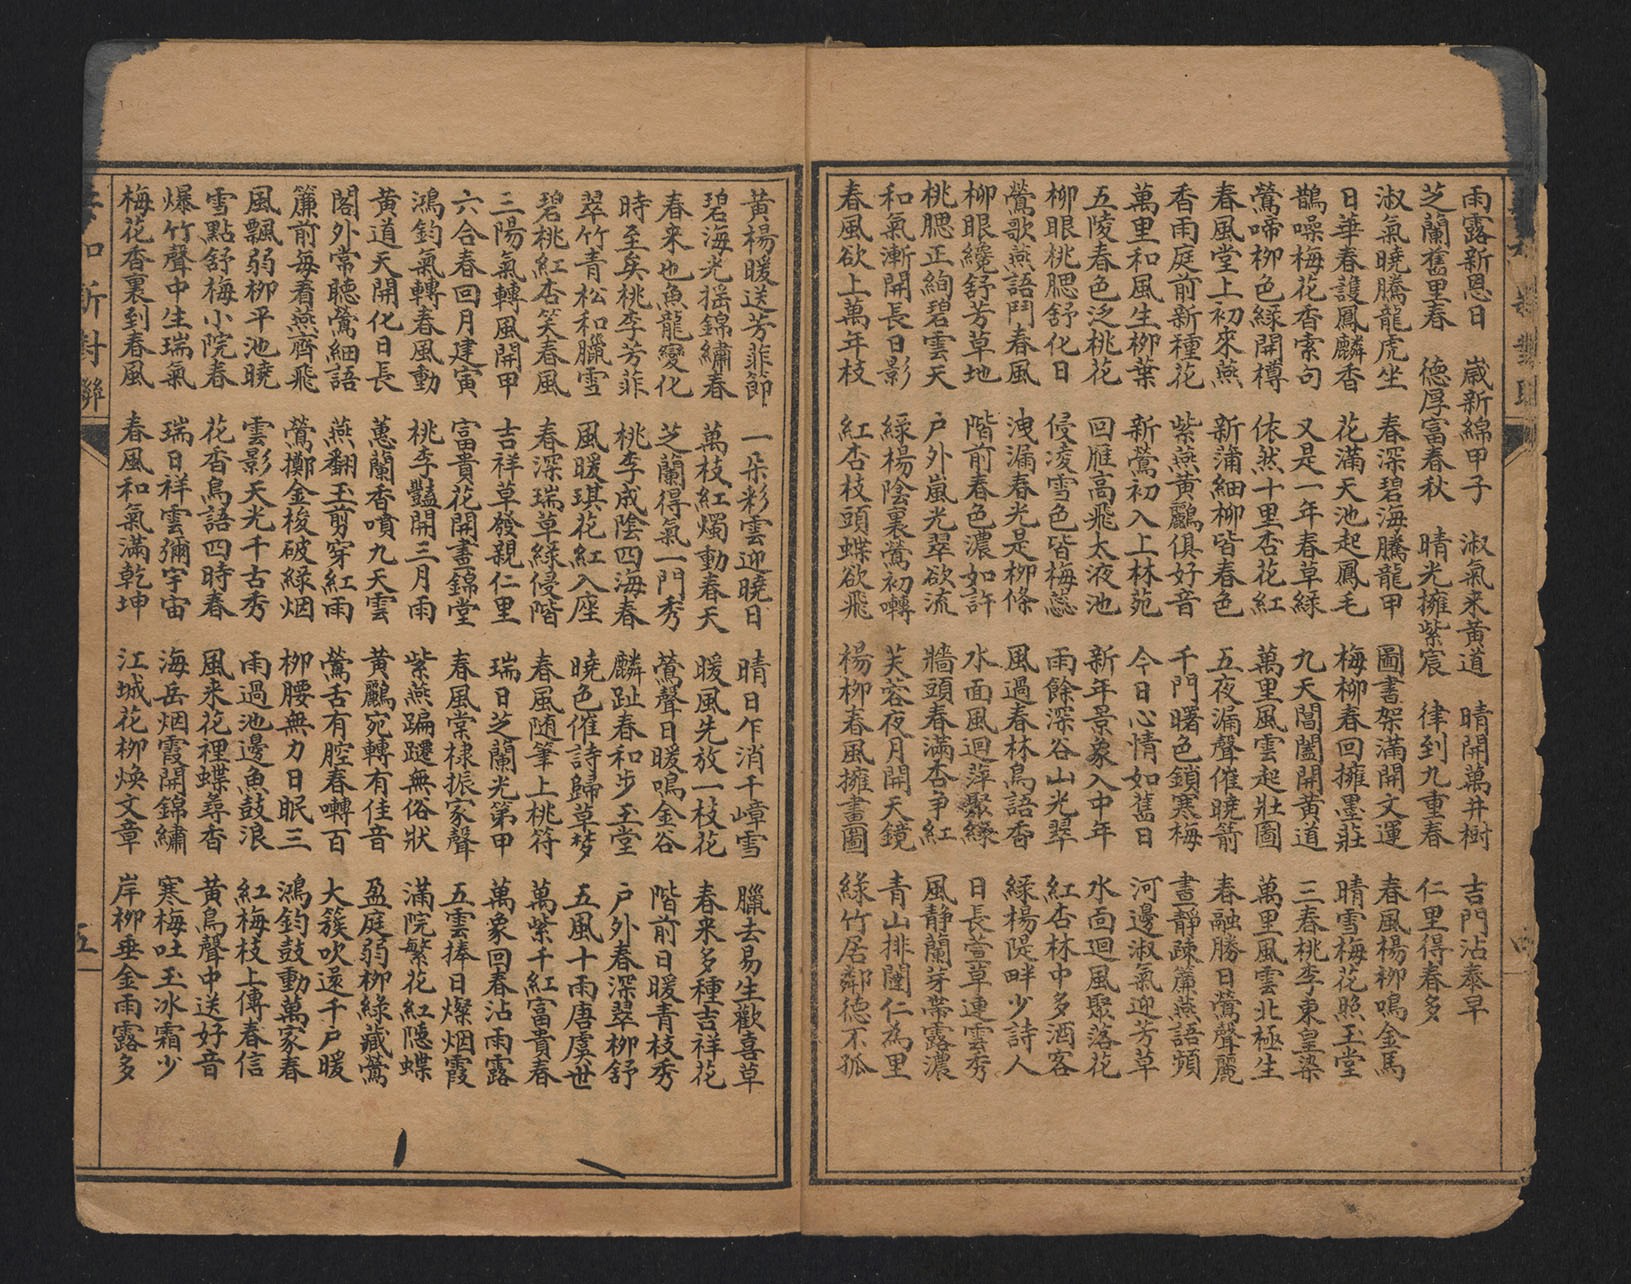 雨露新恩日　歲新綿甲子　淑氣来黃道　晴開萬井樹　吉門沾泰早
芝蘭舊里春　德厚富春秋　晴光擁紫宸　律到九重春　仁里得春多
淑氣曉騰龍虎坐　春深碧海騰龍甲　圖書架滿開文運　春風楊柳鳴金馬
日華春護鳳麟香　花滿天池起鳳毛　梅柳春回擁墨莊　晴雪梅花照玉堂
鵲噪梅花香索句　又是一年春草綠　九天閶闔開黃道　三春桃李東皇染
鶯啼柳色綠開樽　依然十里杏花紅　萬里風雲起壯圖　萬里風雲北極生
春風堂上初來燕　新蒲細柳皆春色　五夜漏聲催曉箭　春融勝日鶯聲麗
香雨庭前新種花　紫燕黃鸝俱好音　千門曙色鎖寒梅　晝靜疎簾燕語頻
萬里和風生柳葉　新鶯初入上林苑　今日心情如舊日　河邊淑氣迎芳草
五陵春色泛桃花　回雁高飛太液池　新年景象入中年　水面迴風聚落花
柳眼桃腮舒化日　侵凌雪色皆梅蕊　雨餘深谷山光翠　紅杏林中多酒客
鶯歌燕語鬥春風　洩漏春光是柳條　風過春林鳥語香　綠楊隄畔少詩人
柳眼纔舒芳草地　階前春色濃如許　水面風迴萍聚綠　日長萱草連雲秀
桃腮正絢碧雲天　戶外嵐光翠欲流　牆頭春滿杏爭紅　風靜蘭芽帶露濃
和氣漸開長日影　綠楊陰裏鶯初囀　芙蓉夜月開天鏡　青山排闥仁為里
春風欲上萬年枝　紅杏枝頭蝶欲飛　楊柳春風擁畫圖　綠竹居鄰德不孤
黃楊暖送芳菲節　一朵彩雲迎曉日　晴日乍消千嶂雪　臘去易生歡喜草
碧海光搖錦繡春　萬枝紅燭動春天　暖風先放一枝花　春来多種吉祥花
春来也魚龍變化　芝蘭得氣一門秀　鶯聲日暖鳴金谷　階前日暖青枝秀
時至矣桃李芳菲　桃李成陰四海春　麟趾春和步玉堂　戶外春深翠柳舒
翠竹青松和臘雪　風暖琪花紅入座　曉色催詩歸草梦　五風十雨唐虞世
碧桃紅杏笑春風　春深瑞草綠侵階　春風随筆上桃符　萬紫千紅富貴春
三陽氣轉風開甲　吉祥草發親仁里　瑞日芝蘭光第甲　萬象回春沾雨露
六合春回月建寅　富貴花開晝錦堂　春風棠棣振家聲　五雲捧日燦烟霞
鴻鈞氣轉春風動　桃李豔開三月雨　紫燕蹁躚無俗狀　滿院繁花紅隱蝶
黃道天開化日長　蕙蘭香噴九天雲　黃鸝宛轉有佳音　盈庭弱柳綠藏鶯
閣外常聽鶯細語　燕翻玉剪穿紅雨　鶯舌有腔春囀百　大簇吹還千戶暖
簾前每看燕齊飛　鶯擲金梭破綠烟　柳腰無力日眠三　鴻鈞鼓動萬家春
風飄弱柳平池曉　雲影天光千古秀　雨過池邊魚鼓浪　紅梅枝上傳春信
雪點舒梅小院春　花香鳥語四時春　風来花裡蝶尋香　黃鳥聲中送好音
爆竹聲中生瑞氣　瑞日祥雲彌宇宙　海岳烟霞開錦繡　寒梅吐玉冰霜少
梅花香裏到春風　春風和氣滿乾坤　江城花柳煥文章　岸柳垂金雨露多
新對聯　五